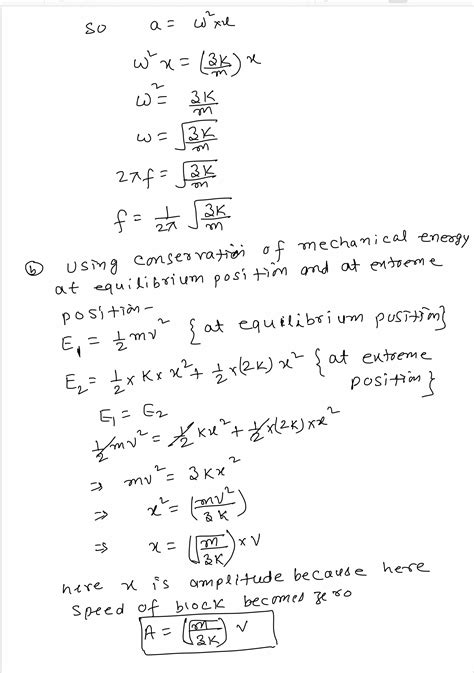 so a = ω²×x
ω²x = (3K/m) x
ω² = 3K/m
ω = √(3K/m)
2πf = √(3K/m)
f = 1/2π √(3K/m)
(b) Using conservation of mechanical energy
at equilibrium position and at extreme
position-
E₁ = ½mv² {at equilibrium position}
E₂ = ½ × K × x² + ½ × (2K) x² {at extreme
position}
E₁ = E₂
½mv² = ½ Kx² + ½×(2K)×x²
⇒ mv² = 3Kx²
⇒ x² = (mv²/3K)
⇒ x = (√(m/3K)) × V
here x is amplitude because here
speed of block becomes zero
A = (√(m/3K)) v